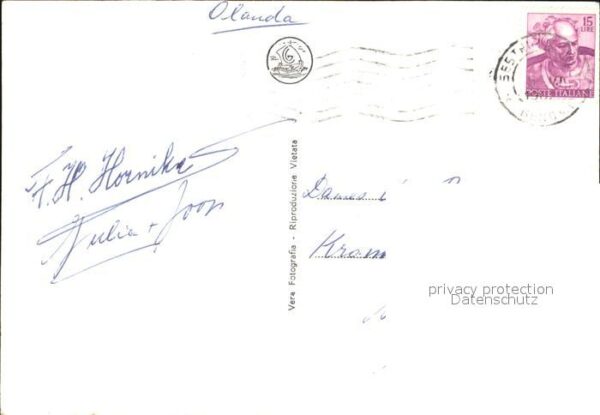 Olanda
15
LIRE
POSTE ITALIANE
F. H. Hornika
Julia + Joop
Vera Fotografia - Riproduzione Vietata
Kram
privacy protection
Datenschutz